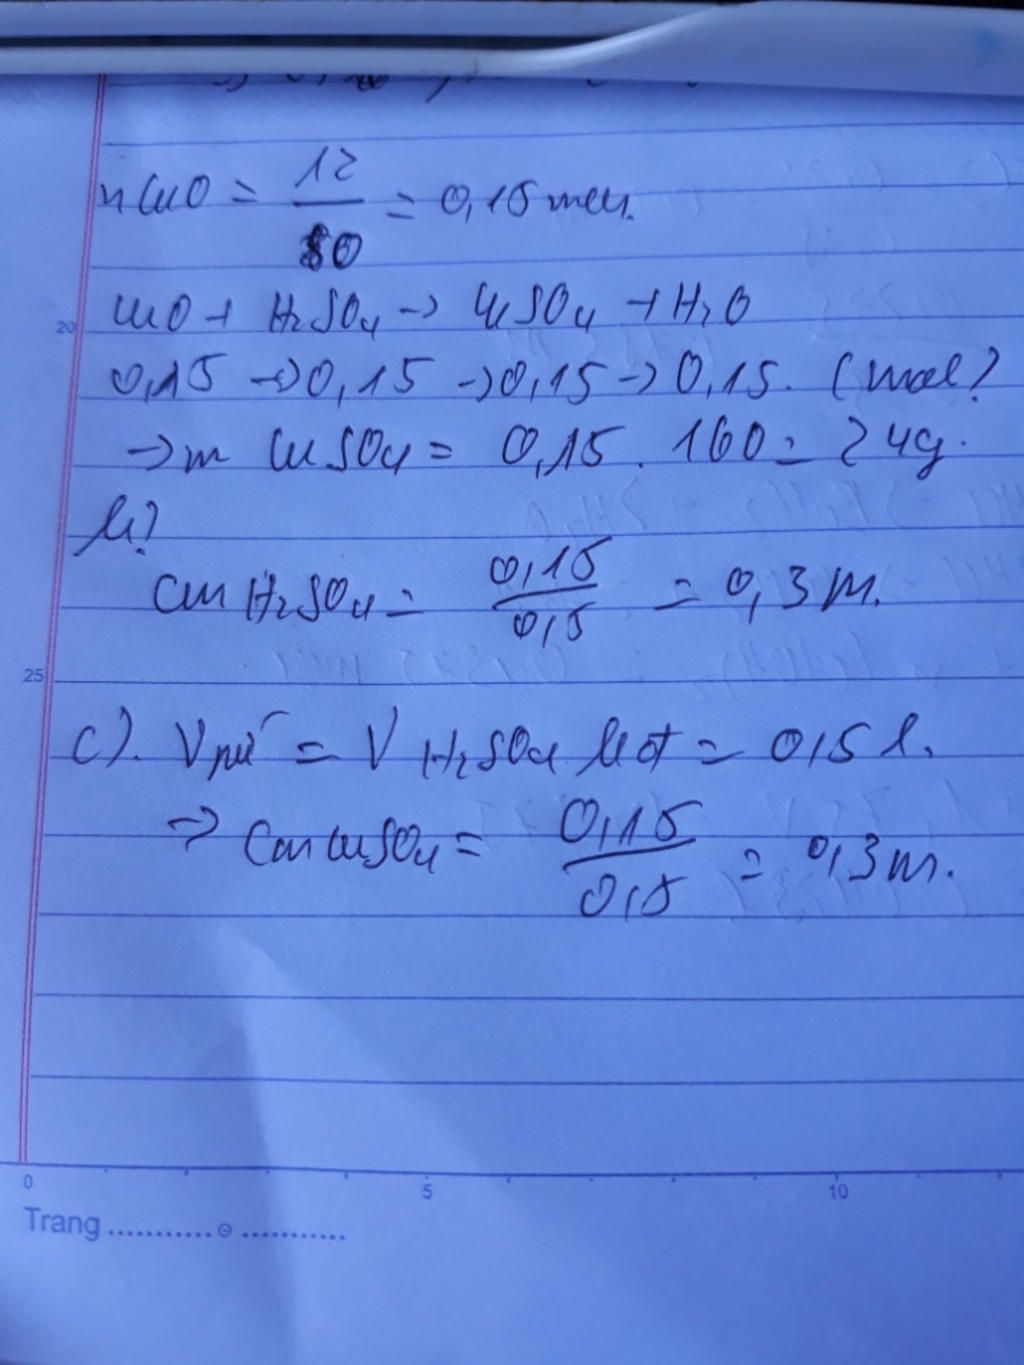 nCuO = 12/80 = 0,15 mol.
20
CuO + H₂SO₄ → CuSO₄ + H₂O
0,15 → 0,15 → 0,15 → 0,15. (mol)
→ m CuSO₄ = 0,15 . 160 = 24g.
b)
CM H₂SO₄ = 0,15/0,5 = 0,3 M.
25
c). V pứ = V H₂SO₄ bđ = 0,5 l.
⇒ CM CuSO₄ = 0,15/0,5 = 0,3 M.
0 5 10
Trang